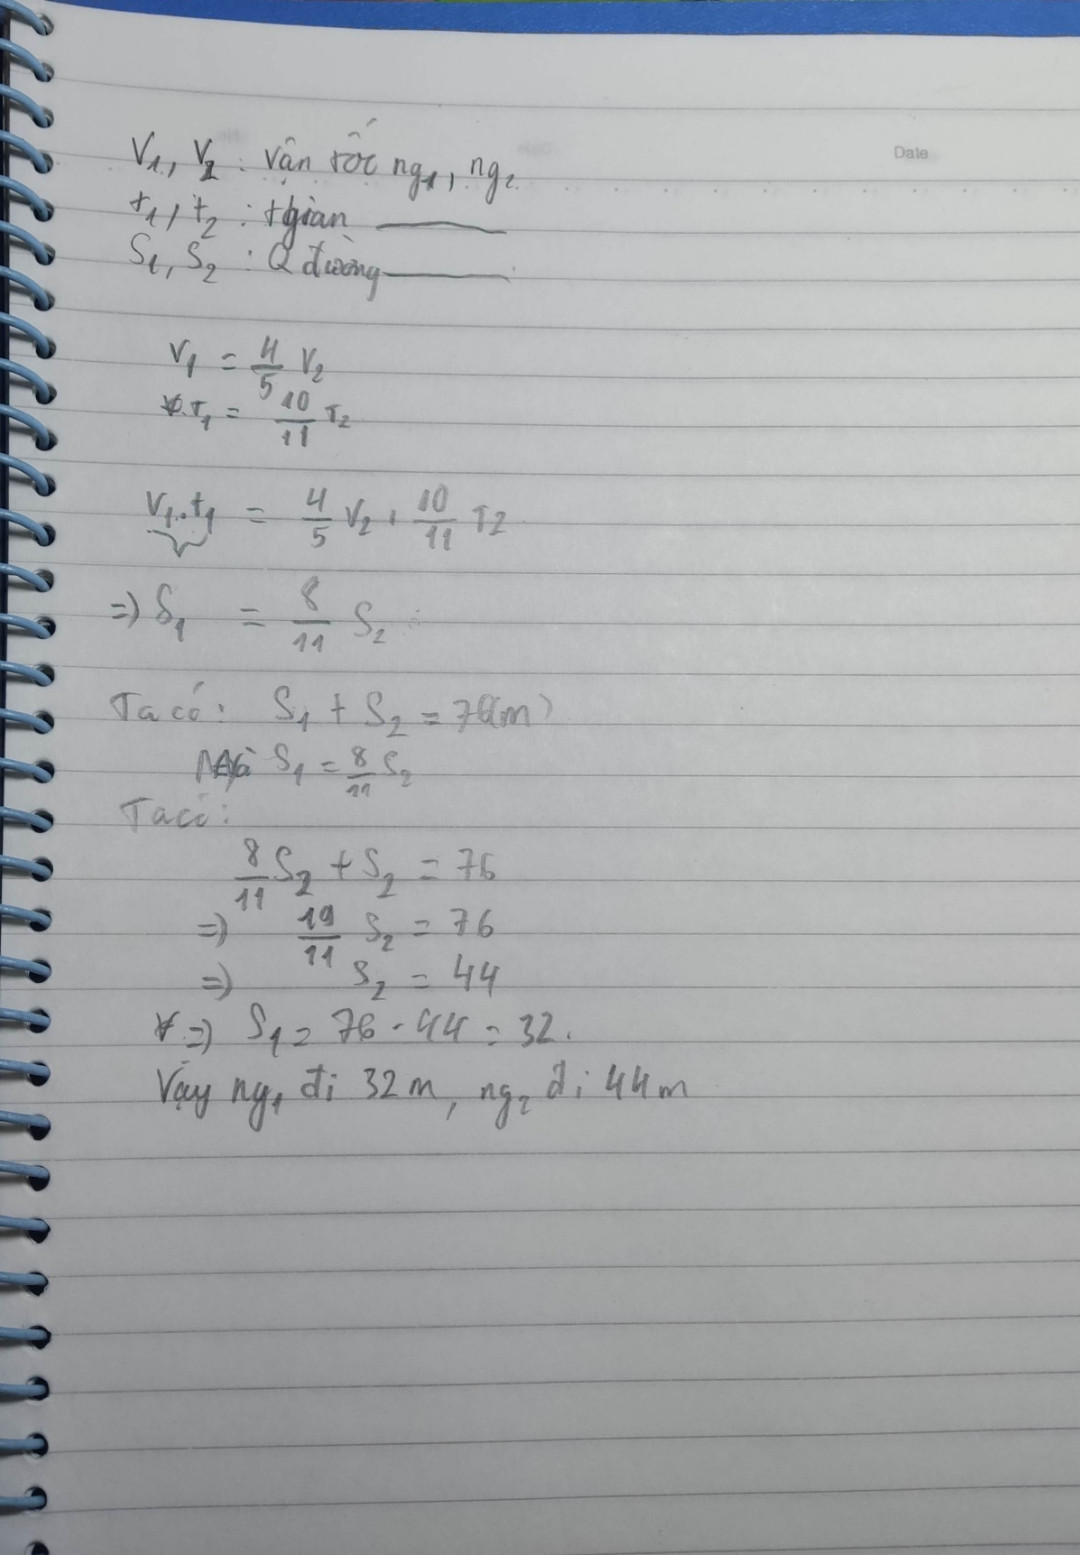 Date
V₁, V₂ : vận tốc ng₁, ng₂
t₁, t₂ : tgian ———
S₁, S₂ : Q đường ———
V₁ = 4/5 V₂
T₁ = 10/11 T₂
V₁.t₁ = 4/5 V₂ . 10/11 T₂
=> S₁ = 8/11 S₂
Ta có: S₁ + S₂ = 76(m)
Mà S₁ = 8/11 S₂
Ta có:
8/11 S₂ + S₂ = 76
=> 19/11 S₂ = 76
=> S₂ = 44
=> S₁ = 76 - 44 = 32.
Vậy ng₁ đi 32m, ng₂ đi 44m